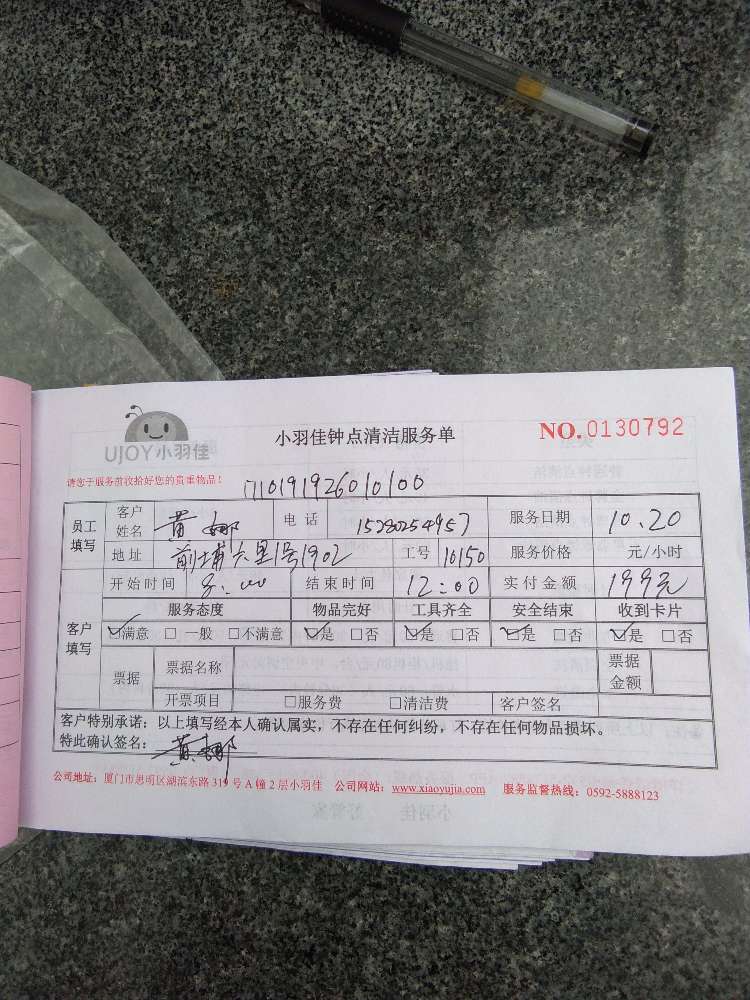 UJOY小羽佳 小羽佳钟点清洁服务单 NO.0130792
请您于服务前收拾好您的贵重物品! 1710191926010100
员工填写 客户姓名 黄娜 电话 15280254957 服务日期 10.20
地址 前埔六里1号1902 工号 10150 服务价格 元/小时
客户填写 开始时间 8:00 结束时间 12:00 实付金额 199元
服务态度 物品完好 工具齐全 安全结束 收到卡片
☑满意 □一般 □不满意 ☑是 □否 ☑是 □否 ☑是 □否 ☑是 □否
票据 票据名称 票据金额
开票项目 □服务费 □清洁费 客户签名
客户特别承诺:以上填写经本人确认属实,不存在任何纠纷,不存在任何物品损坏。
特此确认签名: 黄娜
公司地址:厦门市思明区湖滨东路319号A幢2层小羽佳 公司网站:www.xiaoyujia.com 服务监督热线:0592-5888123